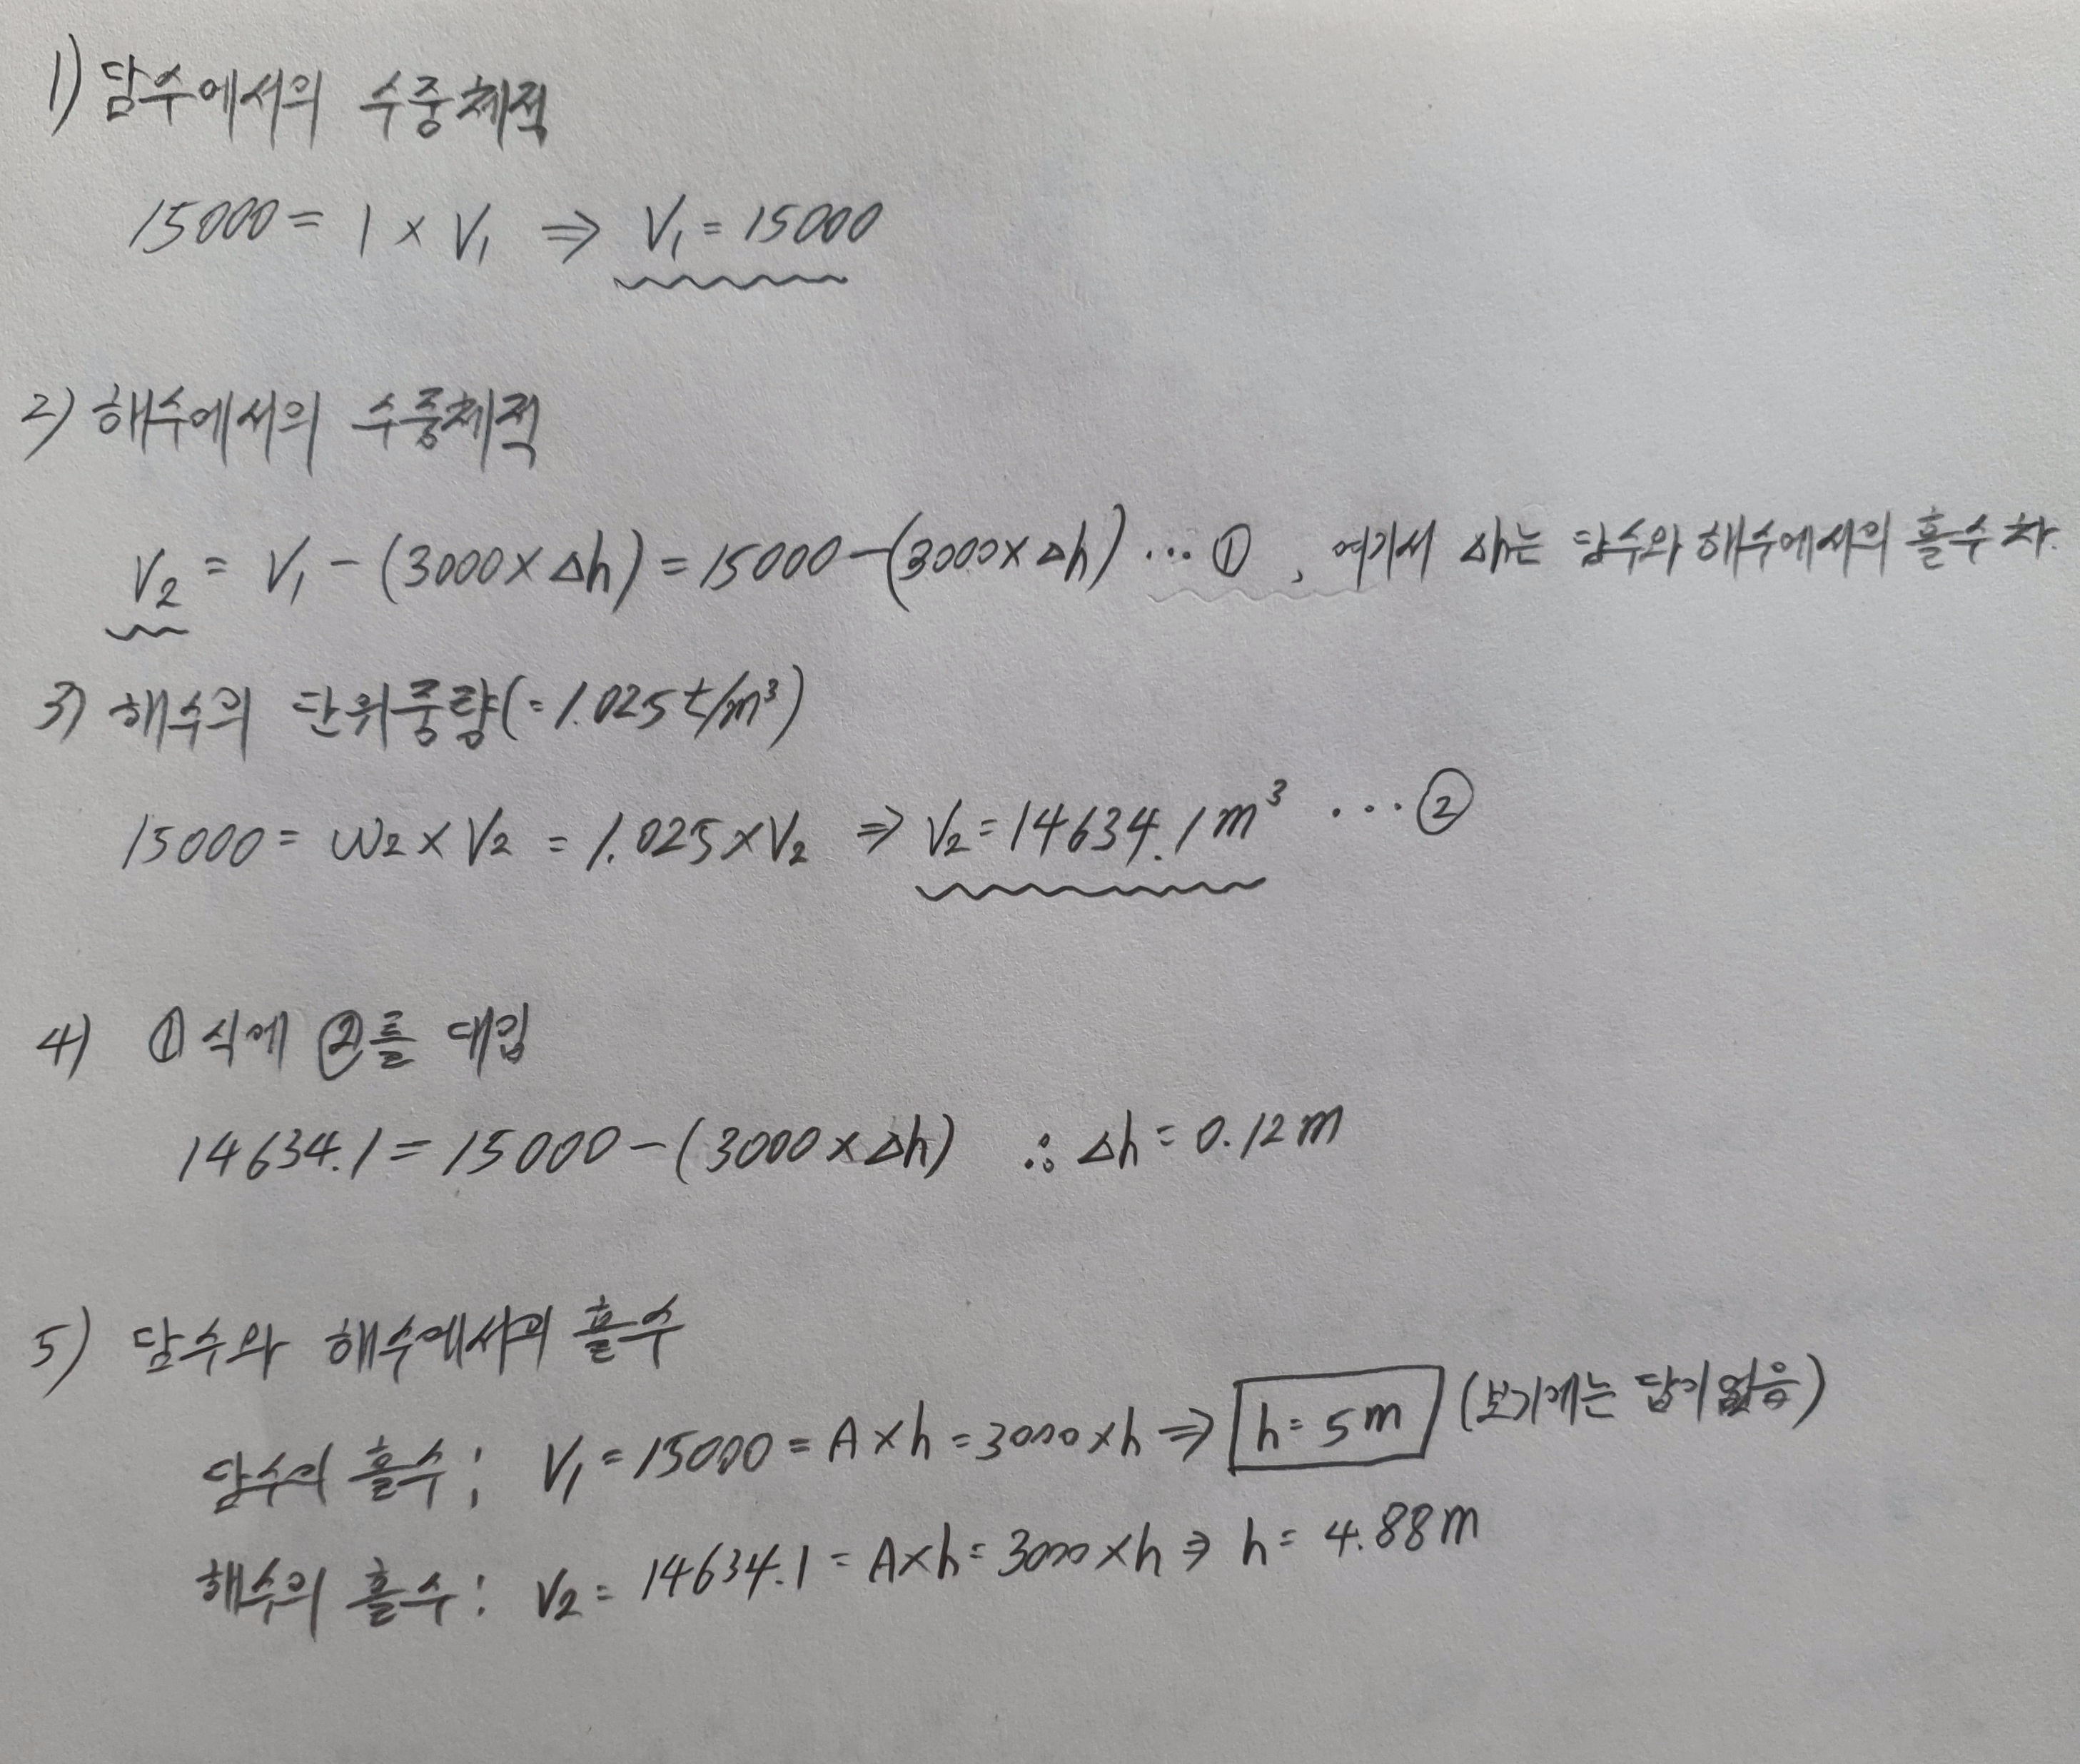 1) 담수에서의 수중체적
15000 = 1 × V₁ ⇒ V₁ = 15000
2) 해수에서의 수중체적
V₂ = V₁ - (3000 × Δh) = 15000 - (3000 × Δh) ··· ①, 여기서 Δh는 담수와 해수에서의 흘수차.
3) 해수의 단위중량(=1.025 t/m³)
15000 = W₂ × V₂ = 1.025 × V₂ ⇒ V₂ = 14634.1 m³ ··· ②
4) ①식에 ②를 대입
14634.1 = 15000 - (3000 × Δh) ∴ Δh = 0.12 m
5) 담수와 해수에서의 흘수
담수의 흘수 ; V₁ = 15000 = A × h = 3000 × h ⇒ h = 5 m (보기에는 답이 없음)
해수의 흘수 : V₂ = 14634.1 = A × h = 3000 × h ⇒ h = 4.88 m